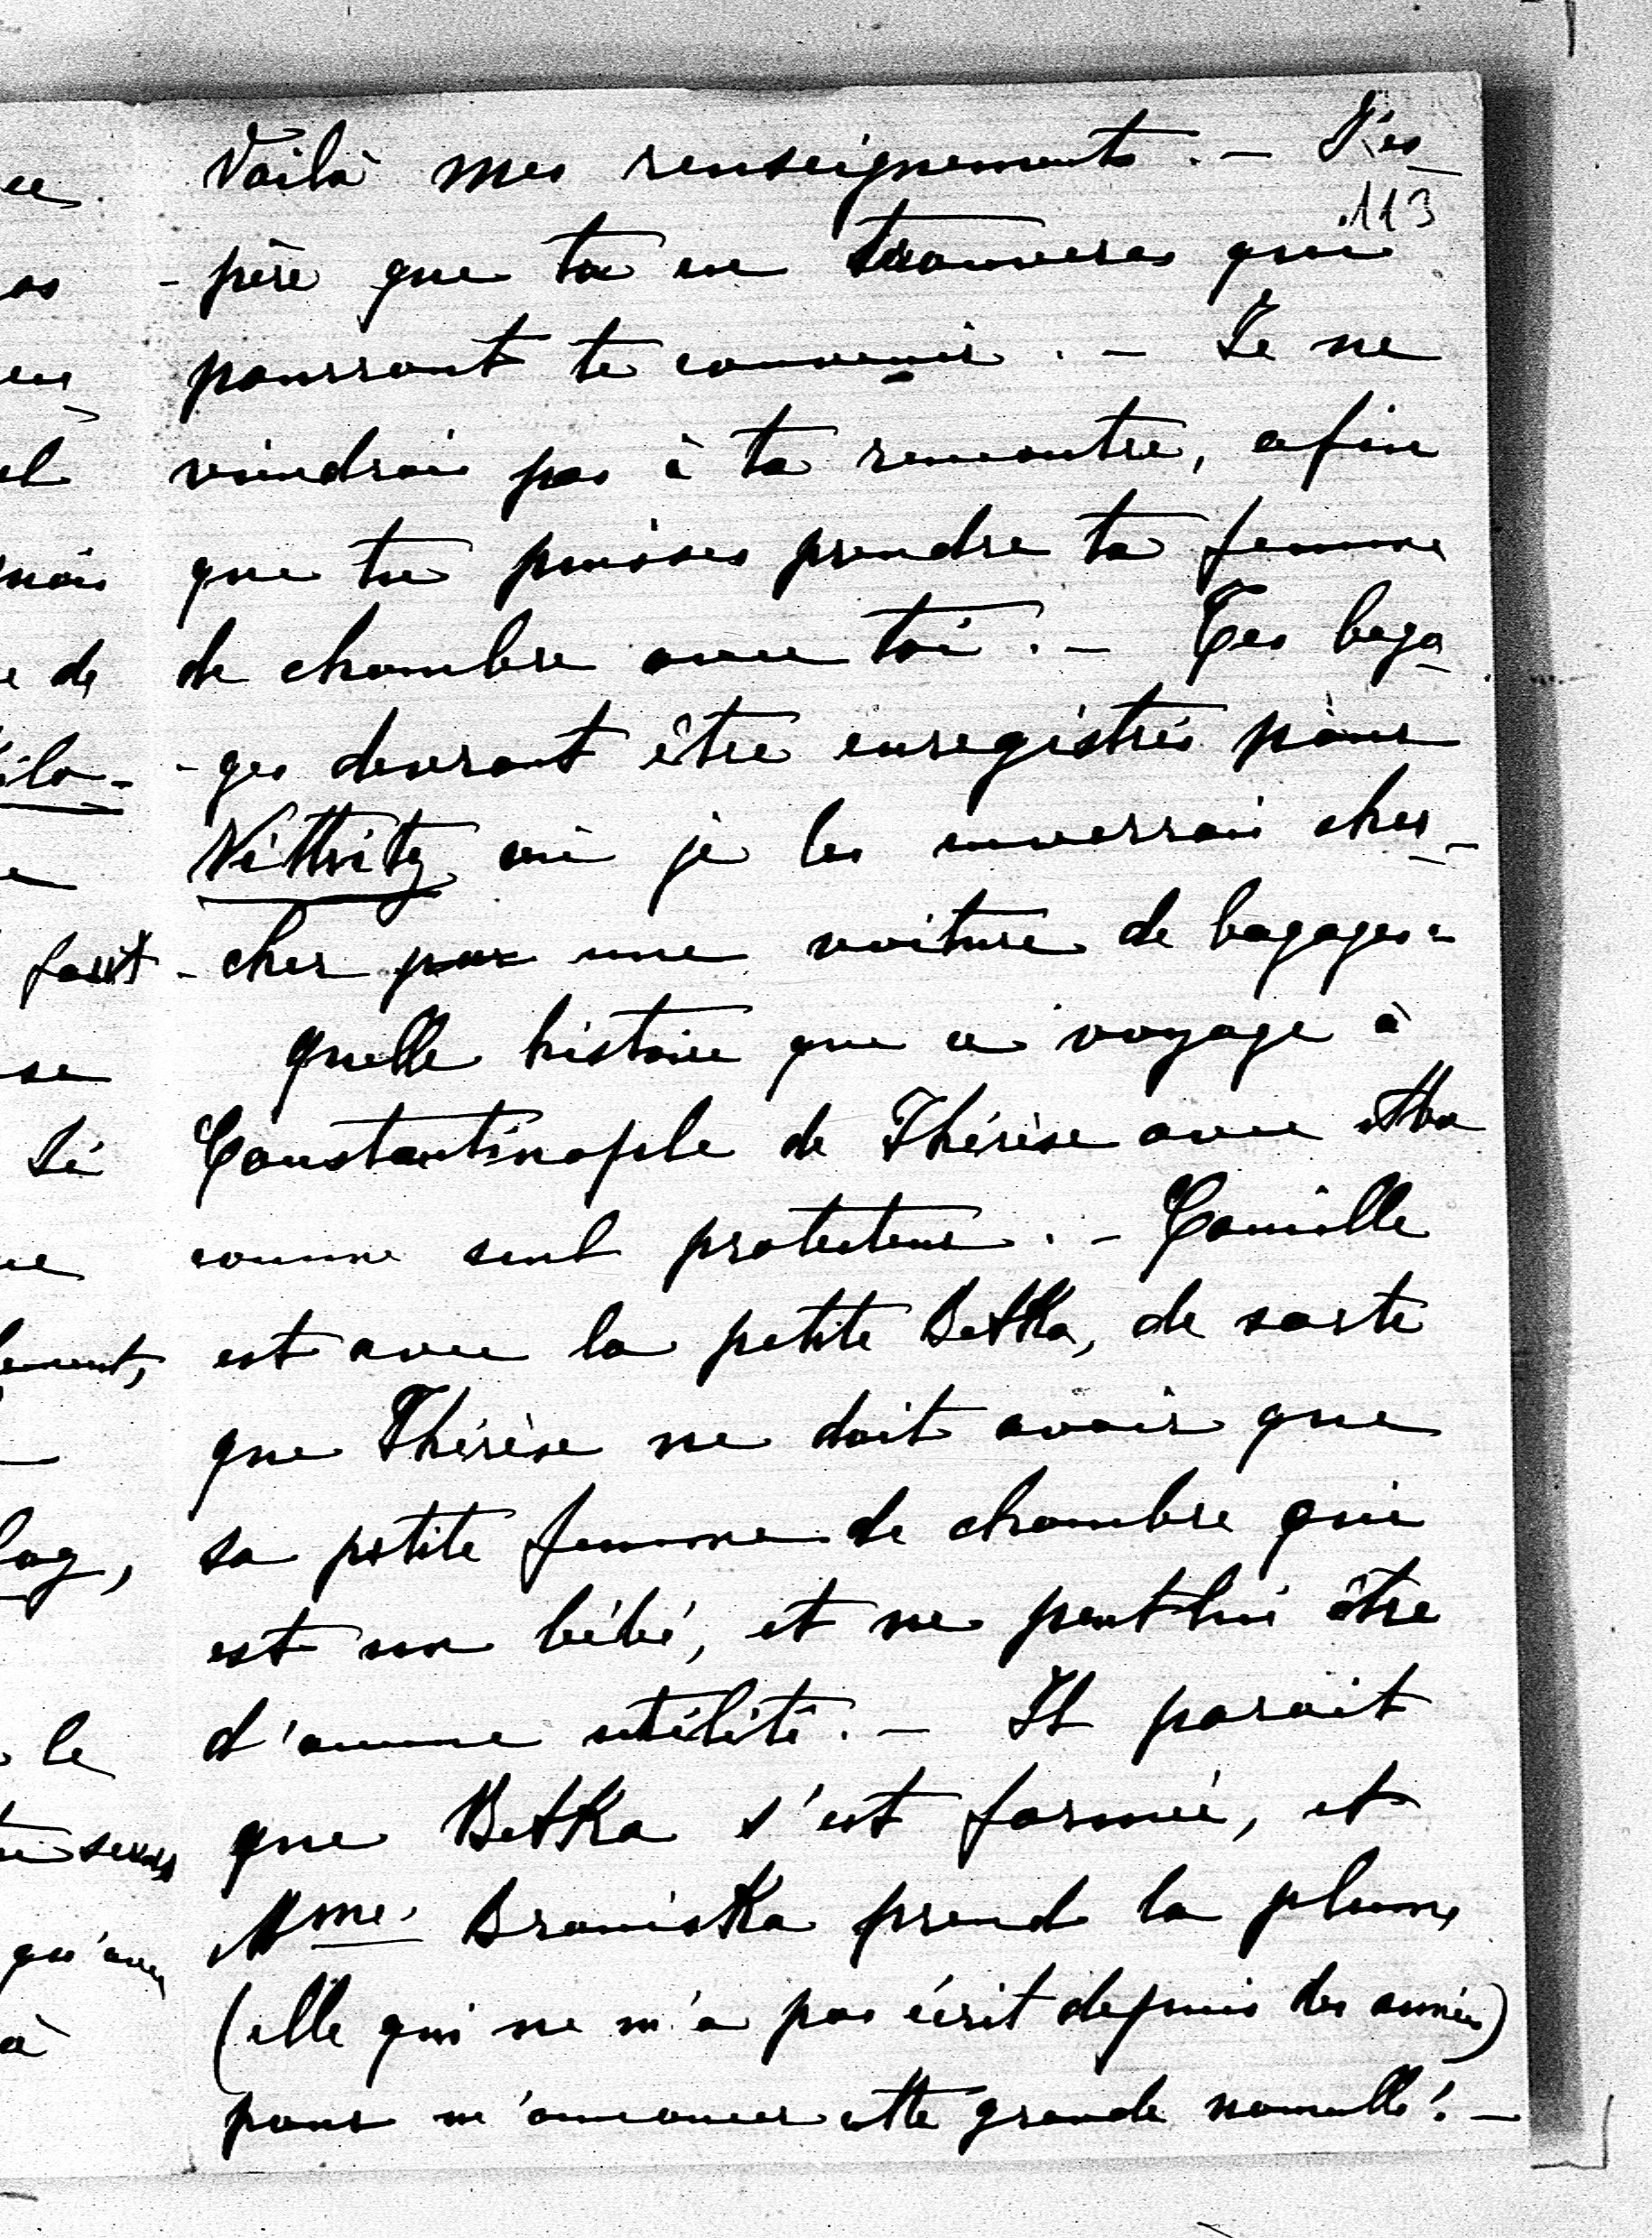 Voilà mes renseignements. — J'es-
113
-père que tu en trouveras qui
pourront te convenir. — Je ne
viendrai pas à ta rencontre, afin
que tu puisses prendre ta femme
de chambre avec toi. — Tes baga-
-ges devront être enregistrés pour
Vittritz où je les enverrai cher-
-cher par une voiture de bagages.
Quelle histoire que ce voyage à
Constantinople de Thérèse avec
comme seul protecteur. — Camille
est avec la petite Betka, de sorte
que Thérèse ne doit avoir que
sa petite femme de chambre qui
est un bébé, et ne peut lui être
d'aucune utilité. — Il parait
que Betka s'est formée, et
Mme. Braniska prend la plume
(elle qui ne m'a pas écrit depuis des années)
pour m'annoncer cette grande nouvelle! —